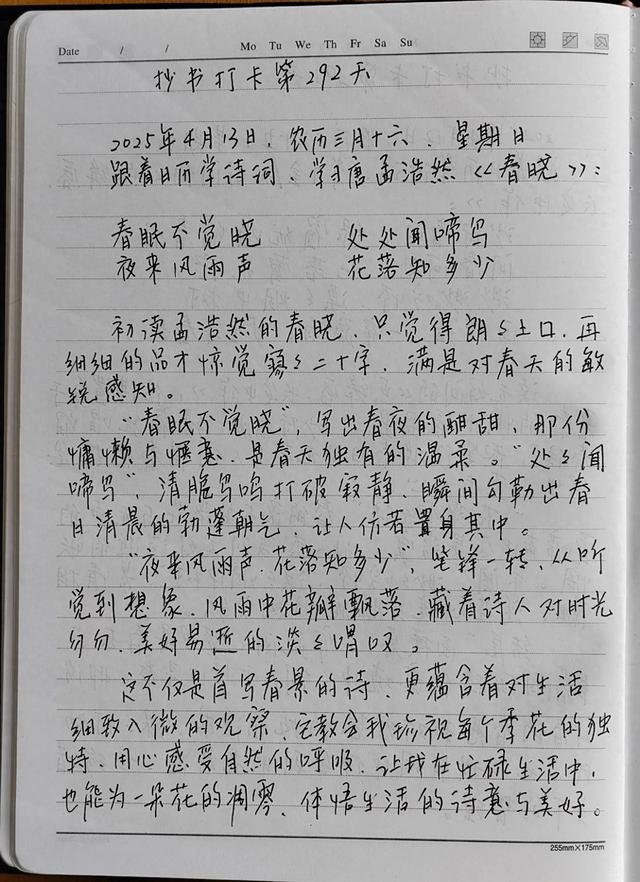 Date / / Mo Tu We Th Fr Sa Su
抄书打卡第292天
2025年4月13日，农历三月十六，星期日
跟着日历学诗词，学习唐孟浩然《春晓》：
春眠不觉晓 处处闻啼鸟
夜来风雨声 花落知多少
初读孟浩然的春晓，只觉得朗々上口，再
细细的品才惊觉寥々二十字，满是对春天的敏
锐感知。
“春眠不觉晓”，写出春夜的酣甜，那份
慵懒与惬意，是春天独有的温柔。“处々闻
啼鸟”，清脆鸟鸣打破寂静，瞬间勾勒出春
日清晨的勃蓬朝气，让人仿若置身其中。
“夜来风雨声，花落知多少”，笔锋一转，从听
觉到想象，风雨中花瓣飘落，藏着诗人对时光
匆匆，美好易逝的淡々喟叹。
这不仅是首写春景的诗，更蕴含着对生活
细致入微的观察，它教会我珍视每个季花的独
特，用心感受自然的呼吸，让我在忙碌生活中，
也能为一朵花的凋零，体悟生活的诗意与美好。
255mm×175mm